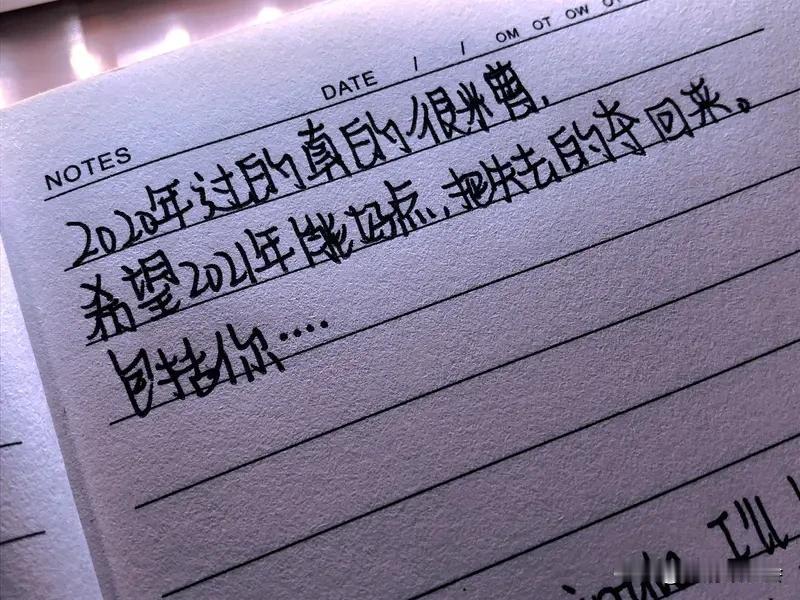 DATE / / OM OT OW OT
NOTES
2020年过的真的很糟,
希望2021年能好点,把失去的夺回来。
包括你····
I'll